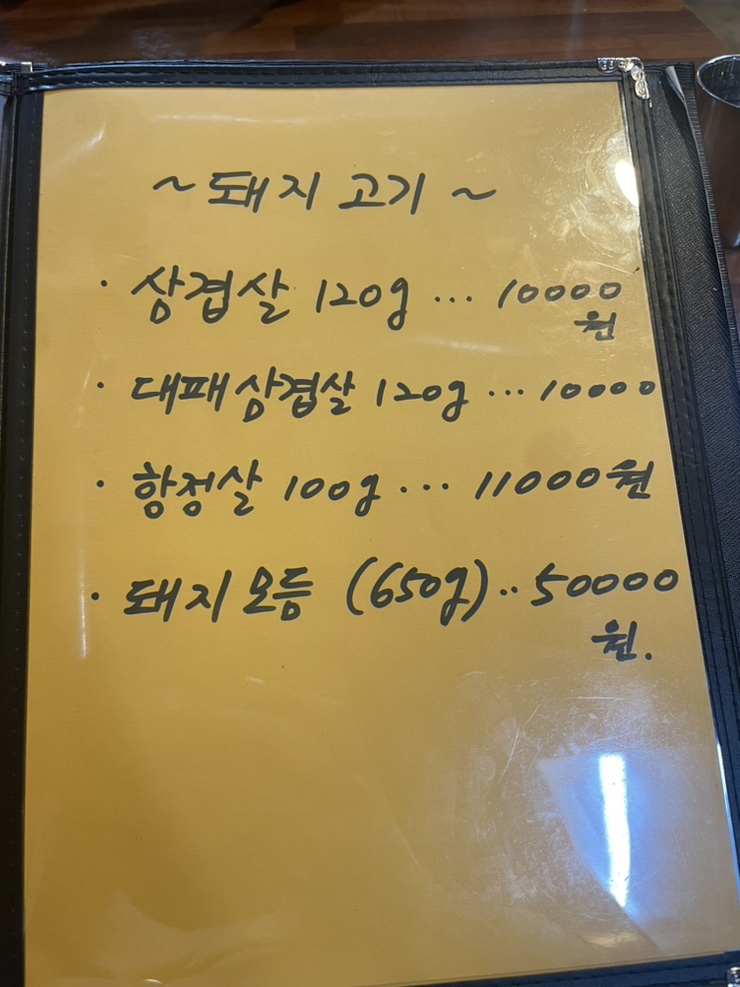 ~ 돼지 고기 ~
· 삼겹살 120g ... 10000
원
· 대패삼겹살 120g ... 10000
· 항정살 100g ... 11000원
· 돼지 모듬 (650g) .. 50000
원.